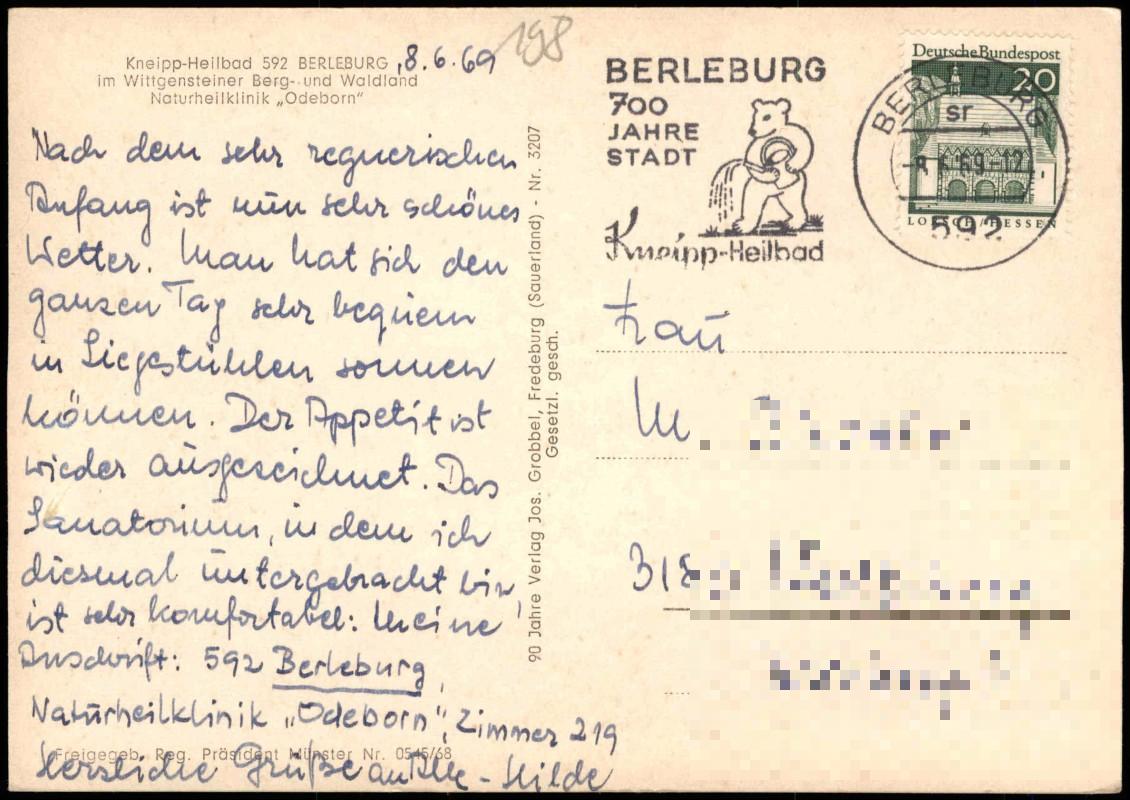 Kneipp-Heilbad 592 BERLEBURG , 8.6.69
im Wittgensteiner Berg- und Waldland
Naturheilklinik „Odeborn"
198
Nach dem sehr regnerischen
Anfang ist nun sehr schönes
Wetter. Man hat sich den
ganzen Tag sehr bequem
in Liegestühlen sonnen
können. Der Appetit ist
wieder ausgezeichnet. Das
Sanatorium, in dem ich
diesmal untergebracht bin,
ist sehr komfortabel: Meine
Anschrift: 592 Berleburg,
Naturheilklinik „Odeborn", Zimmer 219
Freigegeb. Reg. Präsident Münster Nr. 0545/68
Herzliche Grüße an Alle - Hilde
90 Jahre Verlag Jos. Grobbel, Fredeburg (Sauerland) - Nr. 3207
Gesetzl. gesch.
BERLEBURG
700
JAHRE
STADT
Kneipp-Heilbad
Deutsche Bundespost
20
LORSCH/HESSEN
BERLEBURG
sr
-8.6.69-12
592
Frau
M.
318